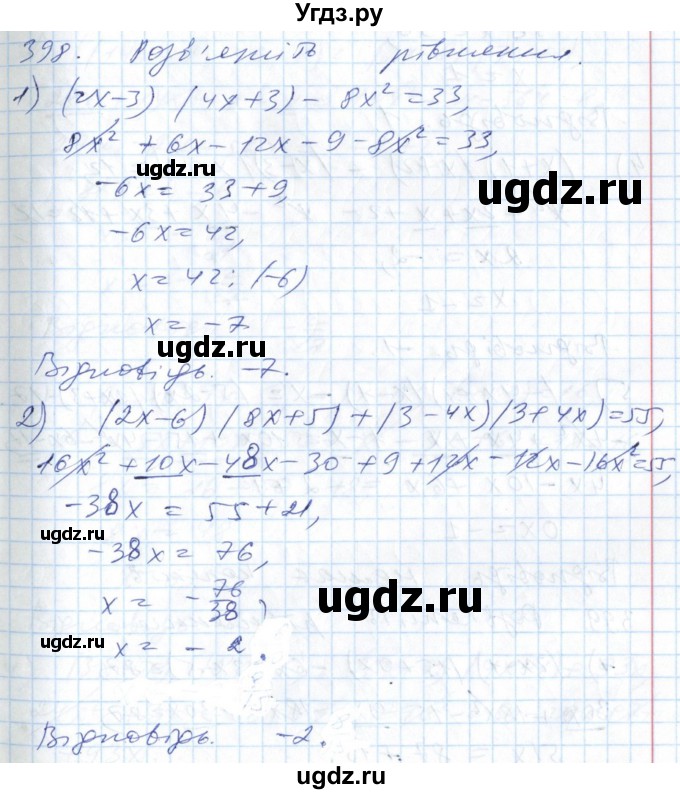 Угдз.ру
398. Розв'яжіть рівняння.
1) (2x-3) (4x+3) - 8x² = 33,
8x² + 6x - 12x - 9 - 8x² = 33,
-6x = 33+9,
-6x = 42,
x = 42 : (-6)
x = -7
Відповідь. -7.
2) (2x-6) (8x+5) + (3-4x)(3+4x) = 55,
16x² + 10x - 48x - 30 + 9 + 12x - 12x - 16x² = 55,
-38x = 55 + 21,
-38x = 76,
x = - 76/38,
x = - 2.
Відповідь. -2.
ugdz.ru
ugdz.ru
ugdz.ru
ugdz.ru
ugdz.ru
ugdz.ru
ugdz.ru
ugdz.ru
ugdz.ru